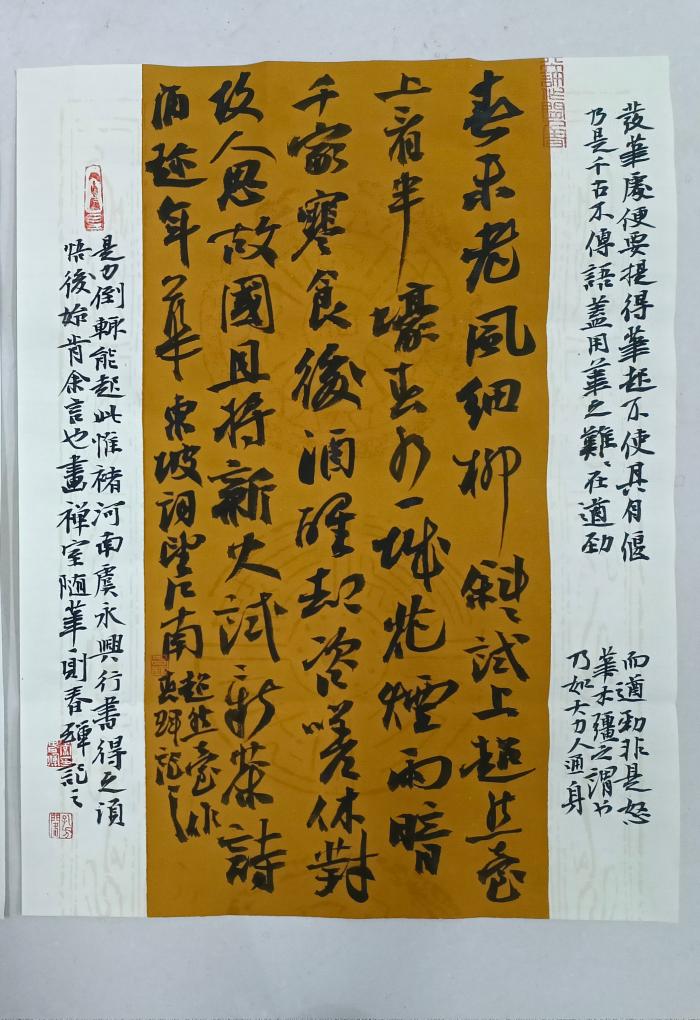 發筆處便要提得筆起不使其自偃
乃是千古不傳語蓋用筆之難〻在遒勁
而遒勁非是怒
筆木彊之謂也
乃如大力人通身
春未老風細柳斜〻試上超然臺
上看半壕春水一城花煙雨暗
千家寒食後酒醒却咨嗟休對
故人思故國且將新火試新茶詩
酒趂年華東坡詞望江南
超然臺作
春暉記之
是力倒輒能起此惟褚河南虞永興行書得之須
悟後始肯余言也畫禪室随筆一則春暉記之